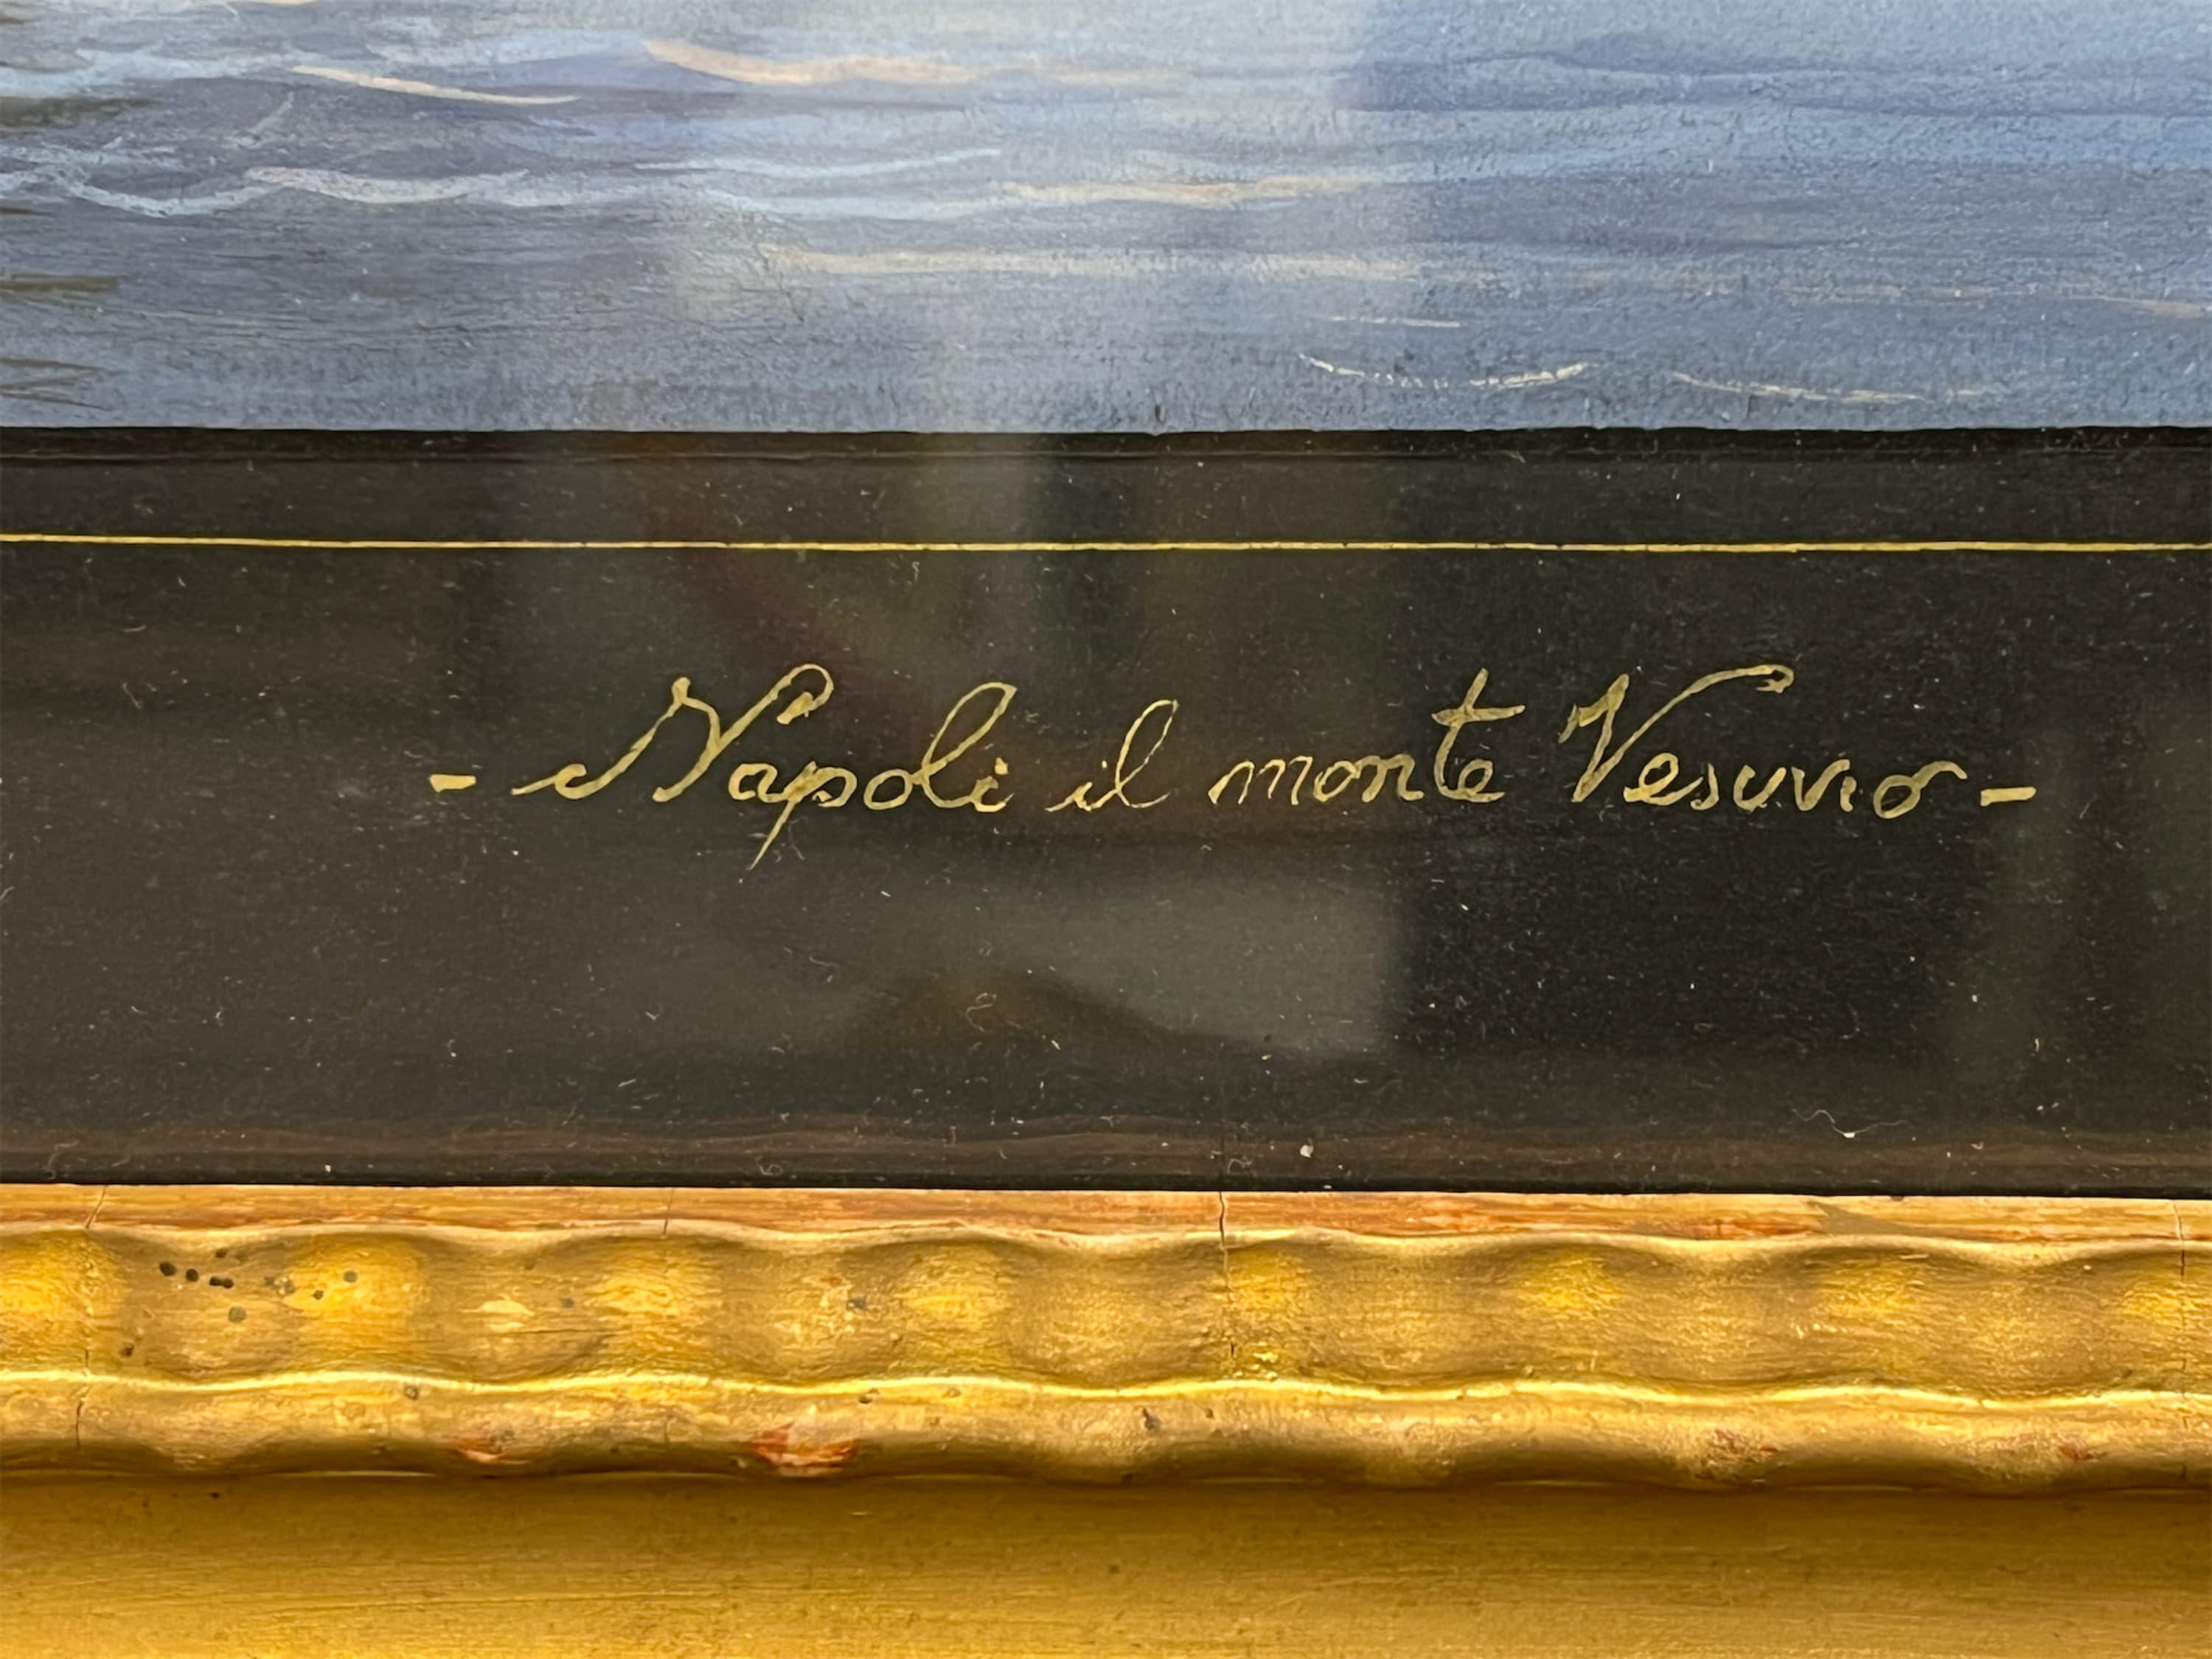 - Napoli il monte Vesuvio -